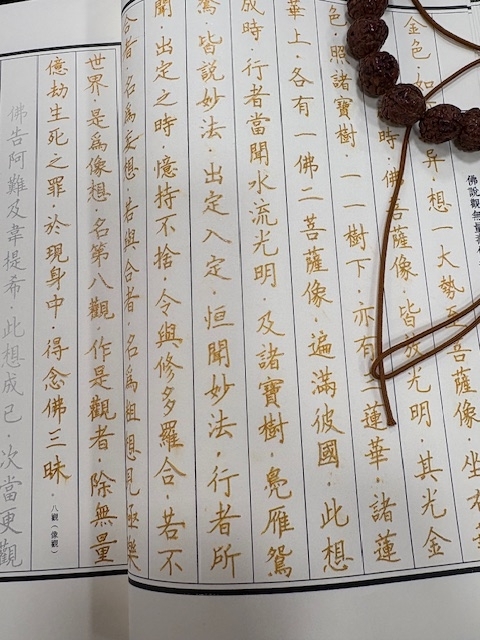 佛說觀無量壽
金色·如異·想一大勢至菩薩像·坐右
時·佛菩薩像·皆放光明·其光金
色·照諸寶樹·一一樹下·亦有蓮華·諸蓮
華上·各有一佛二菩薩像·遍滿彼國·此想
成時·行者當聞水流光明·及諸寶樹·鳧雁鴛
鴦·皆說妙法·出定入定·恒聞妙法·行者所
聞·出定之時·憶持不捨·令與修多羅合·若不
合者·名為妄想·若與合者·名為粗想見極樂
世界·是為像想·名第八觀·作是觀者·除無量
億劫生死之罪·於現身中·得念佛三昧·
八觀（像觀）
佛告阿難及韋提希·此想成已·次當更觀